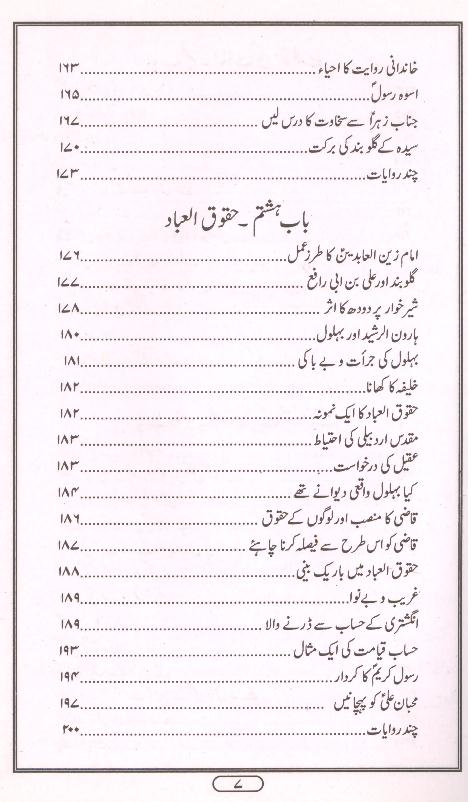 خاندانی روایت کا احیاء........................................۱۶۳
اسوہ رسولؐ........................................۱۶۵
جناب زہراؑ سے سخاوت کا درس لیں........................................۱۶۷
سیدہ کے گلوبند کی برکت........................................۱۷۰
چند روایات........................................۱۷۳
باب ہشتم ۔ حقوق العباد
امام زین العابدینؑ کا طرز عمل........................................۱۷۶
گلوبند اور علی بن ابی رافع........................................۱۷۷
شیر خوار پر دودھ کا اثر........................................۱۷۸
ہارون الرشید اور بہلول........................................۱۸۰
بہلول کی جرأت و بے باکی........................................۱۸۱
خلیفہ کا کھانا........................................۱۸۲
حقوق العباد کا ایک نمونہ........................................۱۸۲
مقدس اردبیلی کی احتیاط........................................۱۸۳
عقیل کی درخواست........................................۱۸۳
کیا بہلول واقعی دیوانے تھے........................................۱۸۴
قاضی کا منصب اور لوگوں کے حقوق........................................۱۸۶
قاضی کو اس طرح سے فیصلہ کرنا چاہئے........................................۱۸۷
حقوق العباد میں باریک بینی........................................۱۸۸
غریب و بے نوا........................................۱۸۹
انگشتری کے حساب سے ڈرنے والا........................................۱۸۹
حساب قیامت کی ایک مثال........................................۱۹۳
رسول کریمؐ کا کردار........................................۱۹۴
محبان علیؑ کو پہچانیں........................................۱۹۷
چند روایات........................................۲۰۰
۷